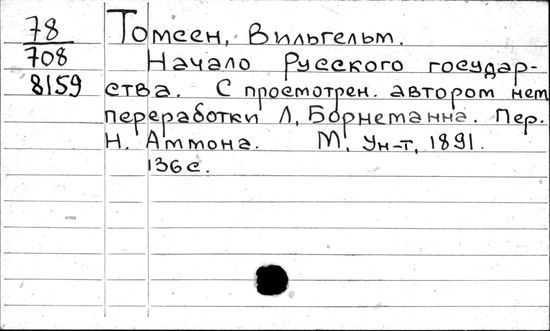 78
708
8159
Томсен, Вильгельм.
Начало Русского государ-
ства. С просмотрен. автором нем
переработки Л. Борнеманна. Пер.
Н. Аммона. М, Ун-т, 1891.
136 с.